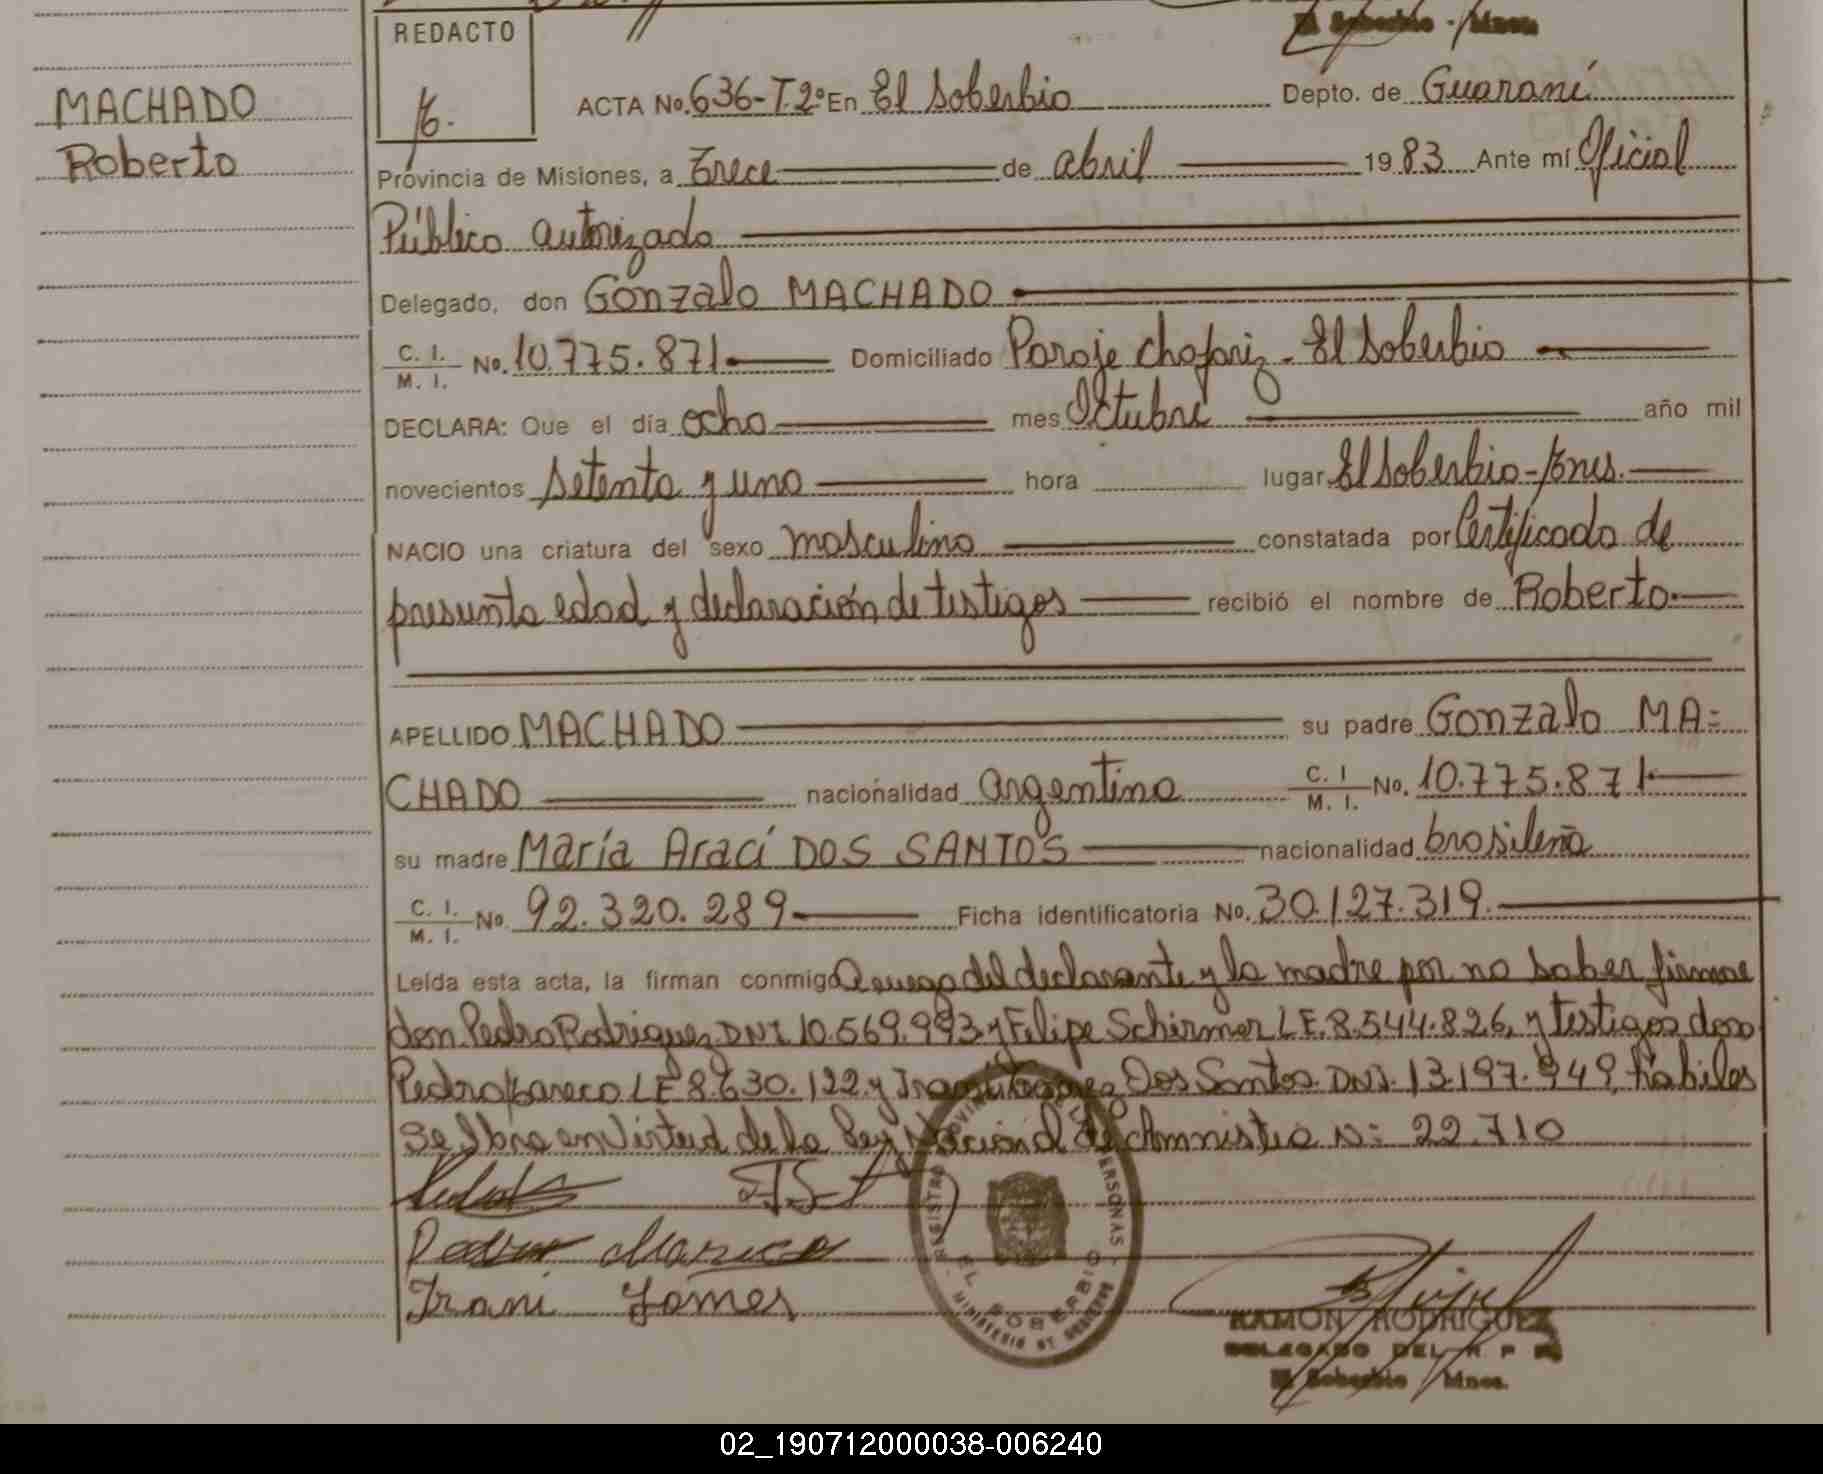 REDACTO
El Soberbio - Mnes.
MACHADO
Roberto
ACTA No. 636-T.2º En El Soberbio Depto. de Guaraní
Provincia de Misiones, a Trece de abril 1983 Ante mí Oficial
Público autorizado
Delegado, don Gonzalo MACHADO
C. I. / M. I. No. 10.775.871 Domiciliado Paraje Chafariz - El Soberbio
DECLARA: Que el día ocho mes Octubre año mil
novecientos setenta y uno hora lugar El Soberbio-Mnes.
NACIO una criatura del sexo masculino constatada por Certificado de
presunta edad y declaración de testigos recibió el nombre de Roberto
APELLIDO MACHADO su padre Gonzalo MA=
CHADO nacionalidad argentina C. I / M. I. No. 10.775.871
su madre María Araci DOS SANTOS nacionalidad brasileña
C. I. / M. I. No. 92.320.289 Ficha identificatoria No. 30.127.319.
Leída esta acta, la firman conmigo A ruego del declarante y la madre por no saber firmar
don Pedro Rodriguez DNI 10.569.993 y Felipe Schirmer LE. 8.544.826, y testigos dos
Pedro LE 8.630.122 y Dos Santos DNI. 13.197.949, hábiles
Se labra en Virtud de la Ley Nacional de Amnistia N: 22.710
Irani Gomes
REGISTRO PROVINCIAL PERSONAS
EL SOBERBIO
MINISTERIO DE GOBIERNO
RAMON RODRIGUEZ
DELEGADO DEL R P P
El Soberbio Mnes.
02_190712000038-006240